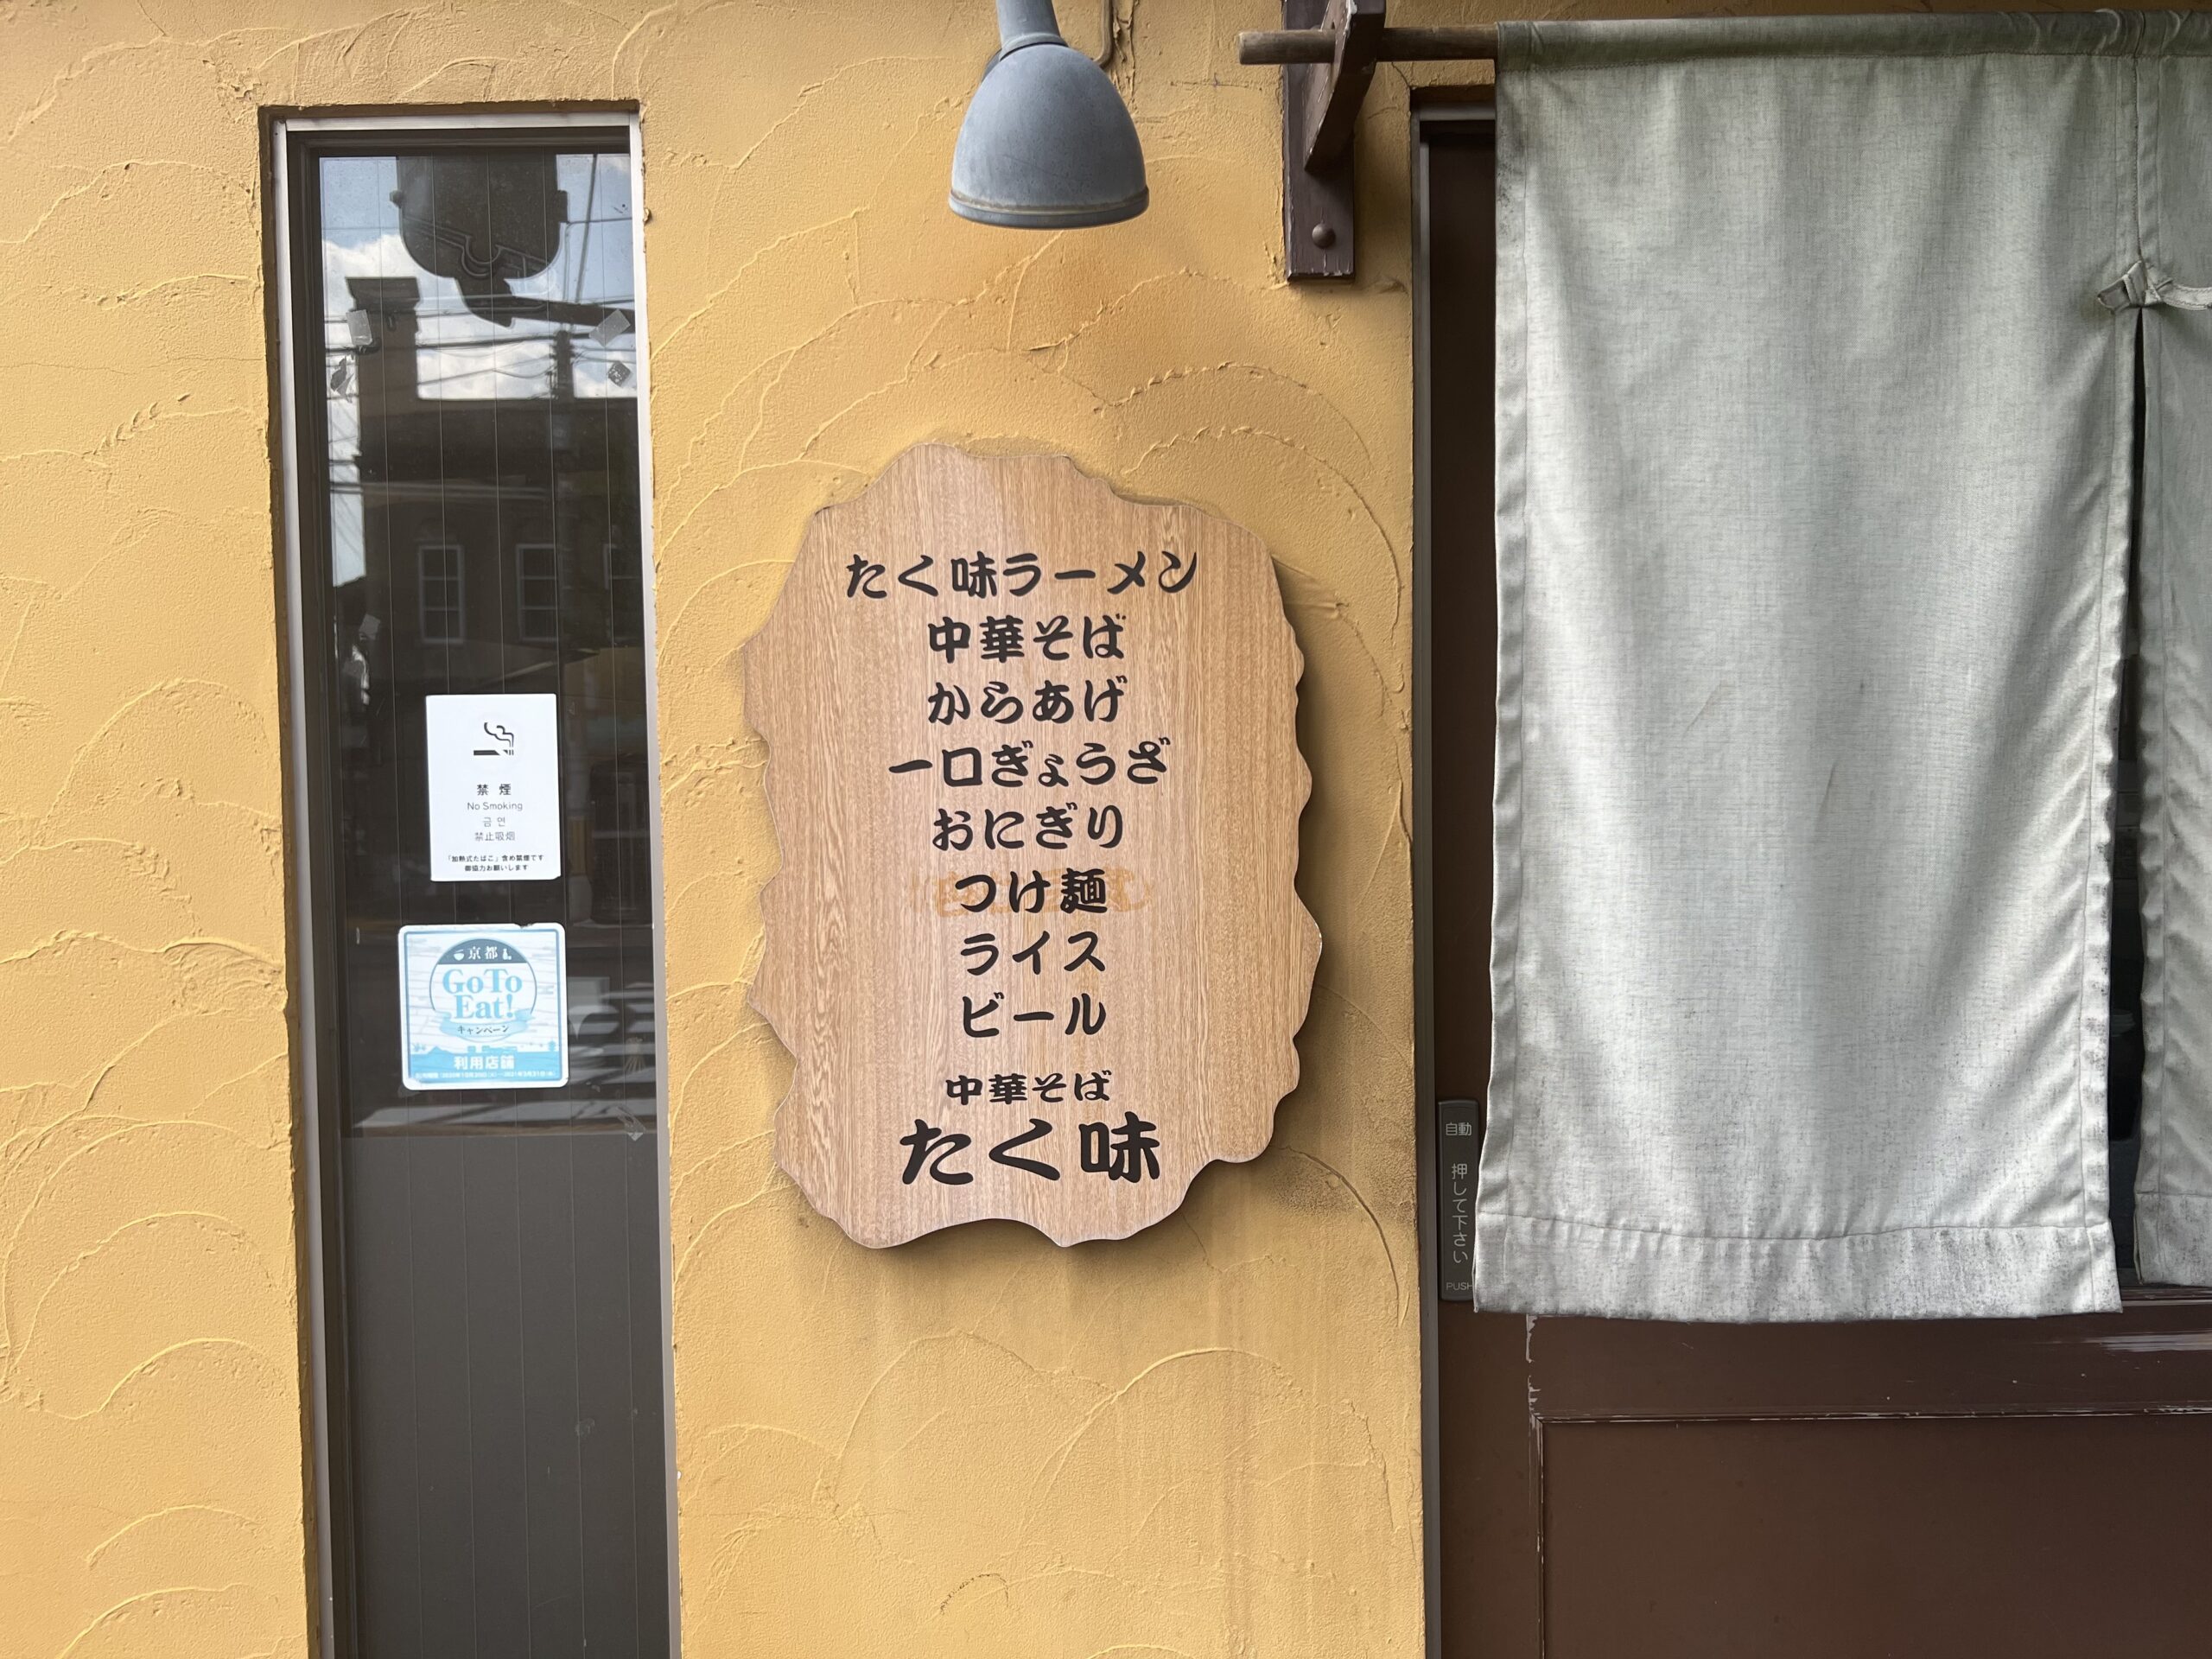 禁煙
No Smoking
금연
禁止吸烟
「加熱式たばこ」含め禁煙です
御協力お願いします
京都
GoTo
Eat!
キャンペーン
利用店舗
たく味ラーメン
中華そば
からあげ
一口ぎょうざ
おにぎり
つけ麺
ライス
ビール
中華そば
たく味
自動
押して下さい
PUSH